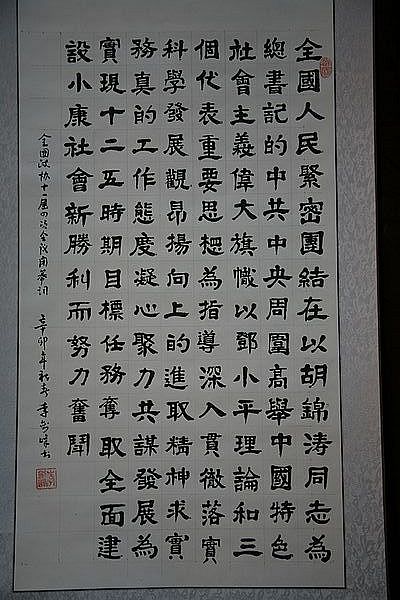 全國人民緊密團結在以胡錦涛同志為
總書記的中共中央周圍高舉中國特色
社會主義偉大旗幟以鄧小平理論和三
個代表重要思想為指導深入貫徹落實
科學發展觀昂揚向上的進取精神求實
務真的工作態度凝心聚力共謀發展為
實現十二五時期目標任務奪取全面建
設小康社會新勝利而努力奮鬥
全國政协十一届四次会议闭幕词
辛卯年秋